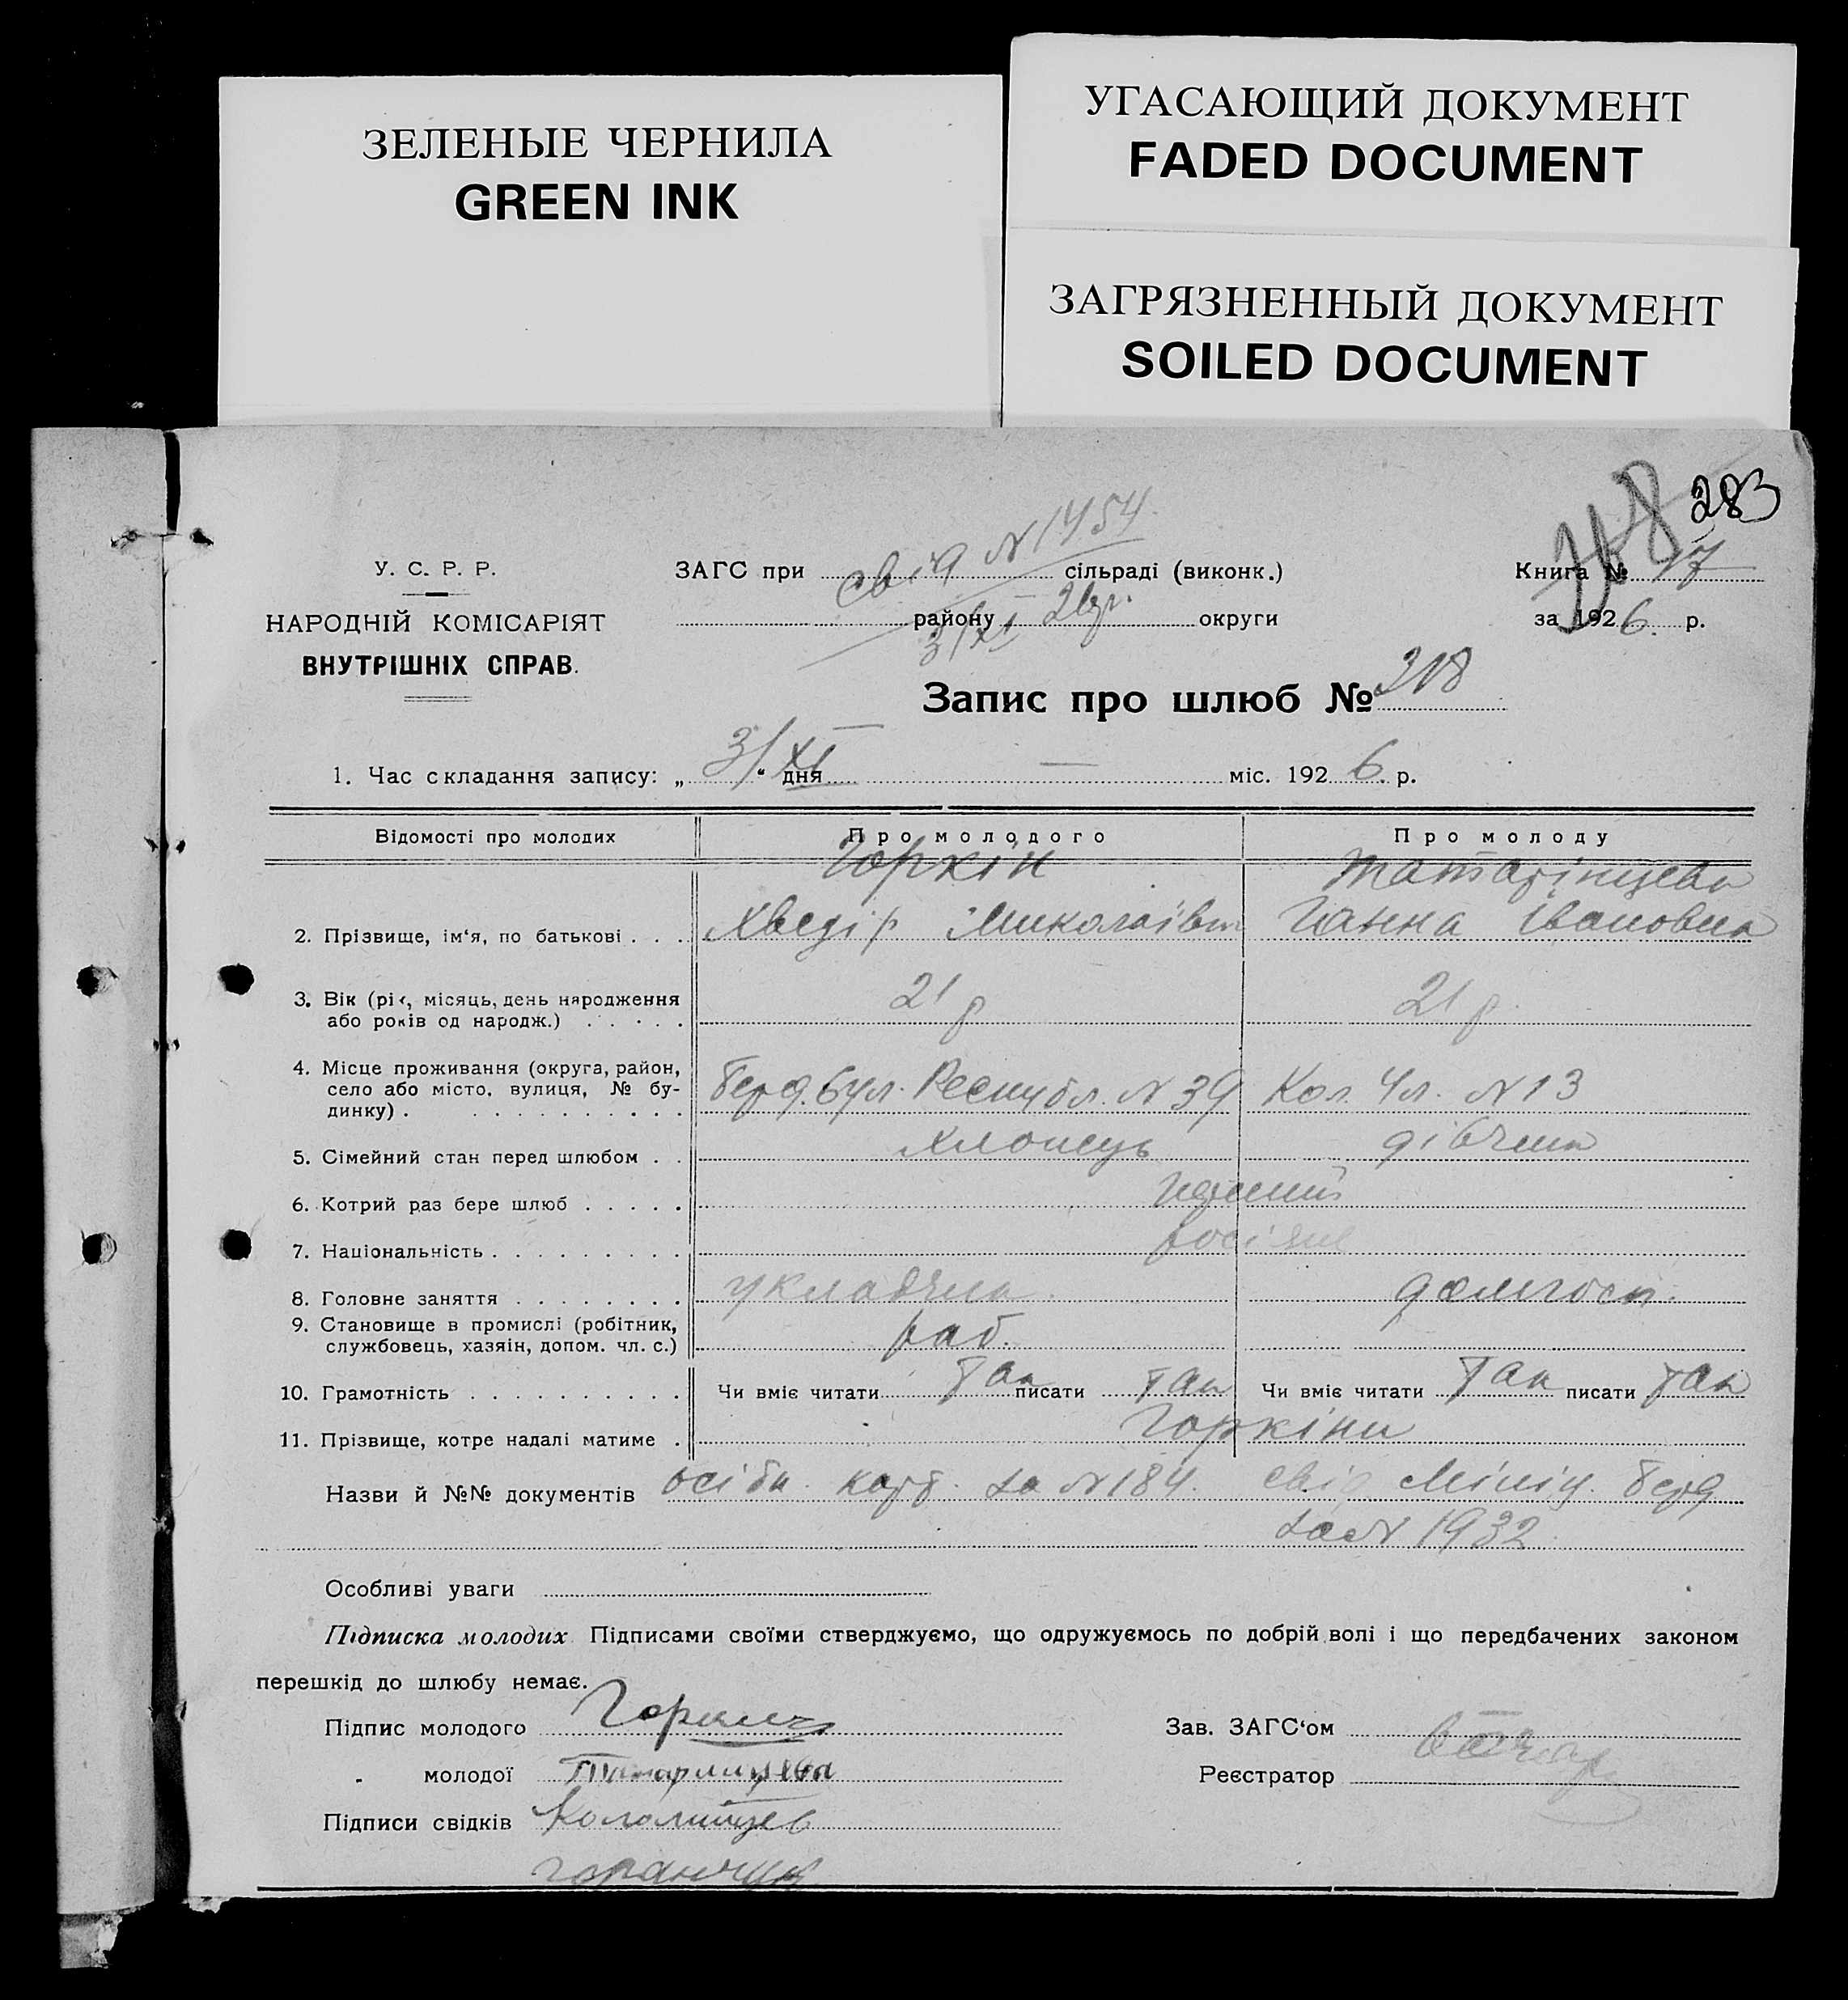 ЗЕЛЕНЫЕ ЧЕРНИЛА
GREEN INK
УГАСАЮЩИЙ ДОКУМЕНТ
FADED DOCUMENT
ЗАГРЯЗНЕННЫЙ ДОКУМЕНТ
SOILED DOCUMENT
283
У. С. Р. Р.
НАРОДНІЙ КОМІСАРІЯТ
ВНУТРІШНІХ СПРАВ.
ЗАГС при сільраді (виконк.)
N 1454
району округи
3/XI
Книга № 17
за 1926. р.
Запис про шлюб № 318
1. Час складання запису: „ 3/XI “ дня — міс. 1926. р.
Відомості про молодих Про молодого Про молоду
Горкін Татарінцева
2. Прізвище, ім‘я, по батькові . . . Хведір Миколаївич Ганна Івановна
3. Вік (рік, місяць, день народження 21 р 21 р.
або років од народж.) . . . . .
4. Місце проживання (округа, район,
село або місто, вулиця, № бу-
динку) . . . . . . . . . . . Берд. бул. Республ. N 39 Кол. Чл. N 13
5. Сімейний стан перед шлюбом . . хлопець дівчина
6. Котрий раз бере шлюб . . . . . перший
7. Національність . . . . . . . . .
8. Головне заняття . . . . . . . . укладчик. домгосп.
9. Становище в промислі (робітник,
службовець, хазяін, допом. чл. с.) раб.
10. Грамотність . . . . . . . . . . Чи вміє читати так писати так Чи вміє читати так писати так
11. Прізвище, котре надалі матиме . Горкіни
Назви й №№ документів карт. за N 184. свід Міліц. Берд
за N 1932
Особливі уваги
Підписка молодих Підписами своїми стверджуємо, що одружуємось по добрій волі і що передбачених законом
перешкід до шлюбу немає.
Підпис молодого Горкин Зав. ЗАГС‘ом
„ молодої Татаринцева Реєстратор
Підписи свідків Коломийцев